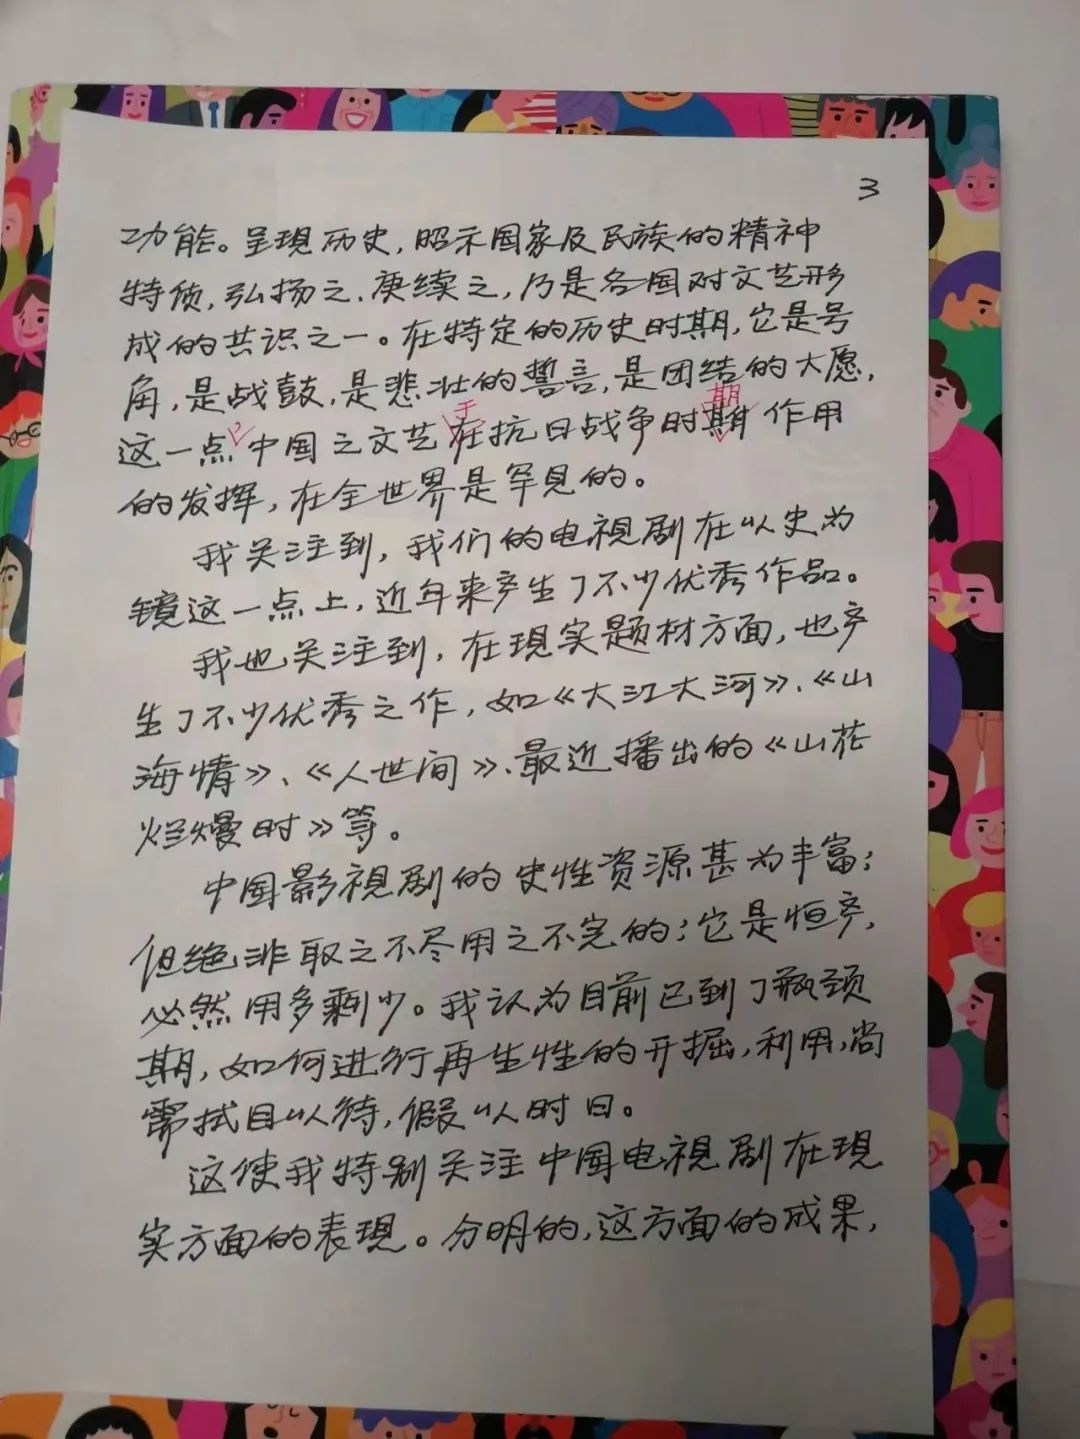 3
功能。呈现历史，昭示国家及民族的精神
特质，弘扬之、赓续之，乃是各国对文艺形
成的共识之一。在特定的历史时期，它是号
角，是战鼓，是悲壮的誓言，是团结的大愿，
于 期
这一点，中国之文艺在抗日战争时期作用
的发挥，在全世界是罕见的。
我关注到，我们的电视剧在以史为
镜这一点上，近年来产生了不少优秀作品。
我也关注到，在现实题材方面，也产
生了不少优秀之作，如《大江大河》、《山
海情》、《人世间》、最近播出的《山花
烂熳时》等。
中国影视剧的史性资源甚为丰富；
但绝非取之不尽用之不完的；它是恒产，
必然用多剩少。我认为目前已到了瓶颈
期，如何进行再生性的开掘，利用，尚
需拭目以待，假以时日。
这使我特别关注中国电视剧在现
实方面的表现。分明的，这方面的成果，